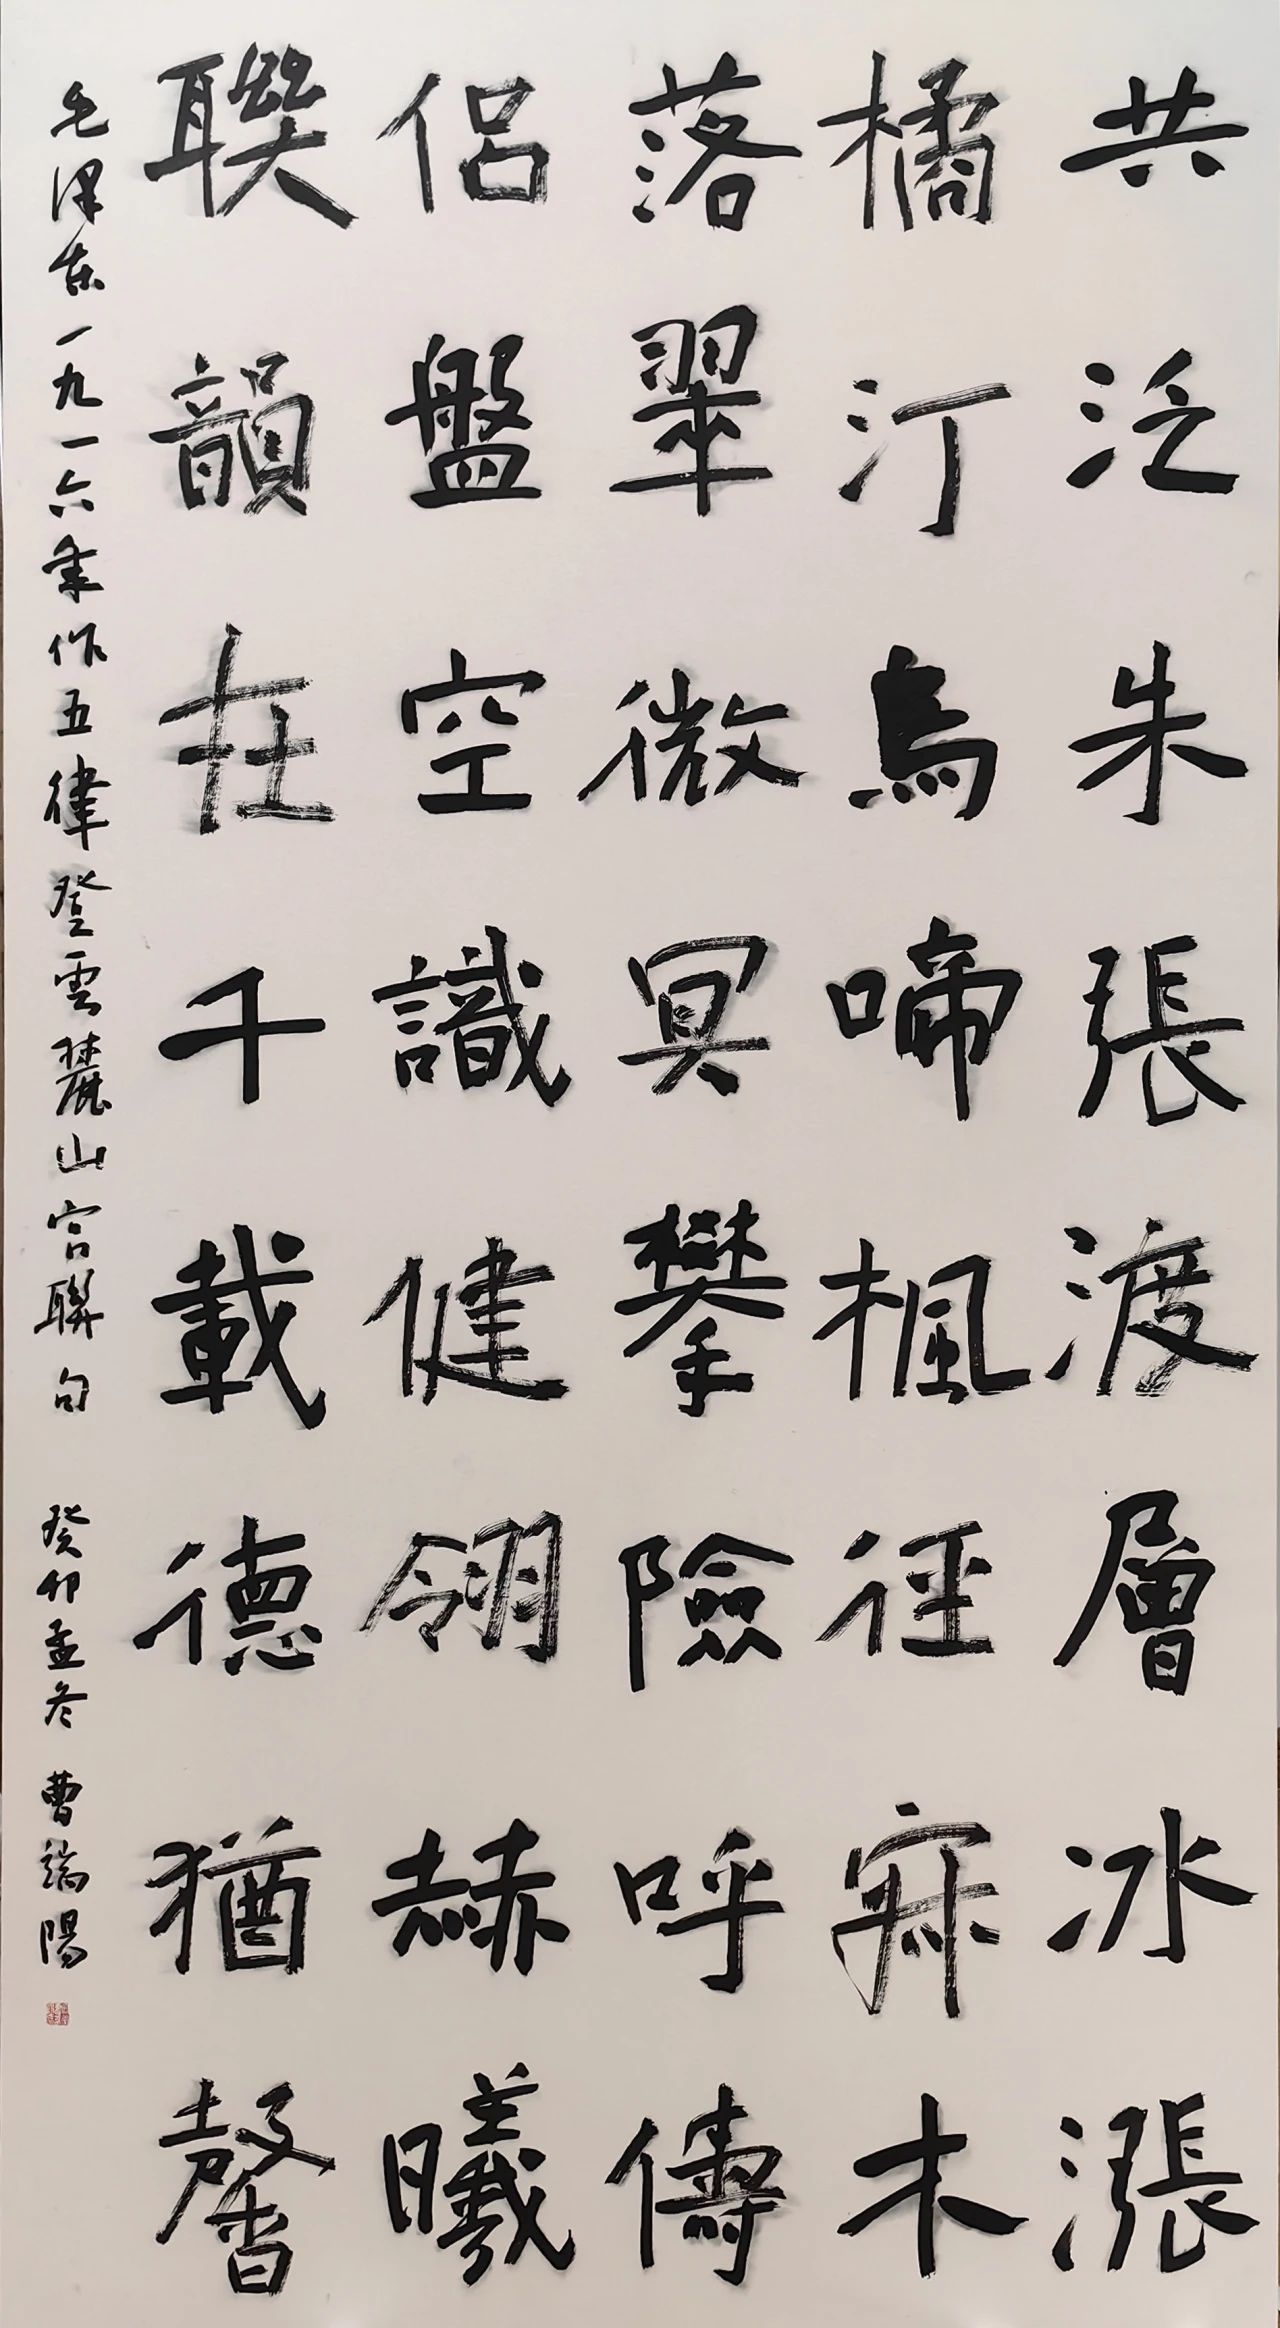 共泛朱張渡層冰漲
橘汀烏啼楓徑寂木
落翠微冥攀險呼儔
侶盤空識健翎赫曦
聯韻在千載德猶馨
毛澤東一九一六年作五律登雲麓山宮聯句 癸卯孟冬 曹端陽